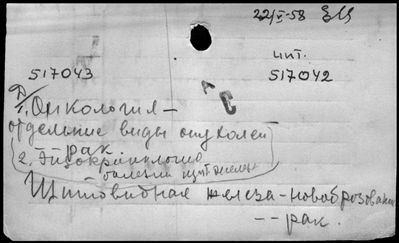 22/V-58
цит.
517043
517042
А
С
1. Онкология —
отдельные виды опухолей
— рак
2. Эндокринология
болезни щит. железы
Щитовидная железа - новообразования
-- рак.